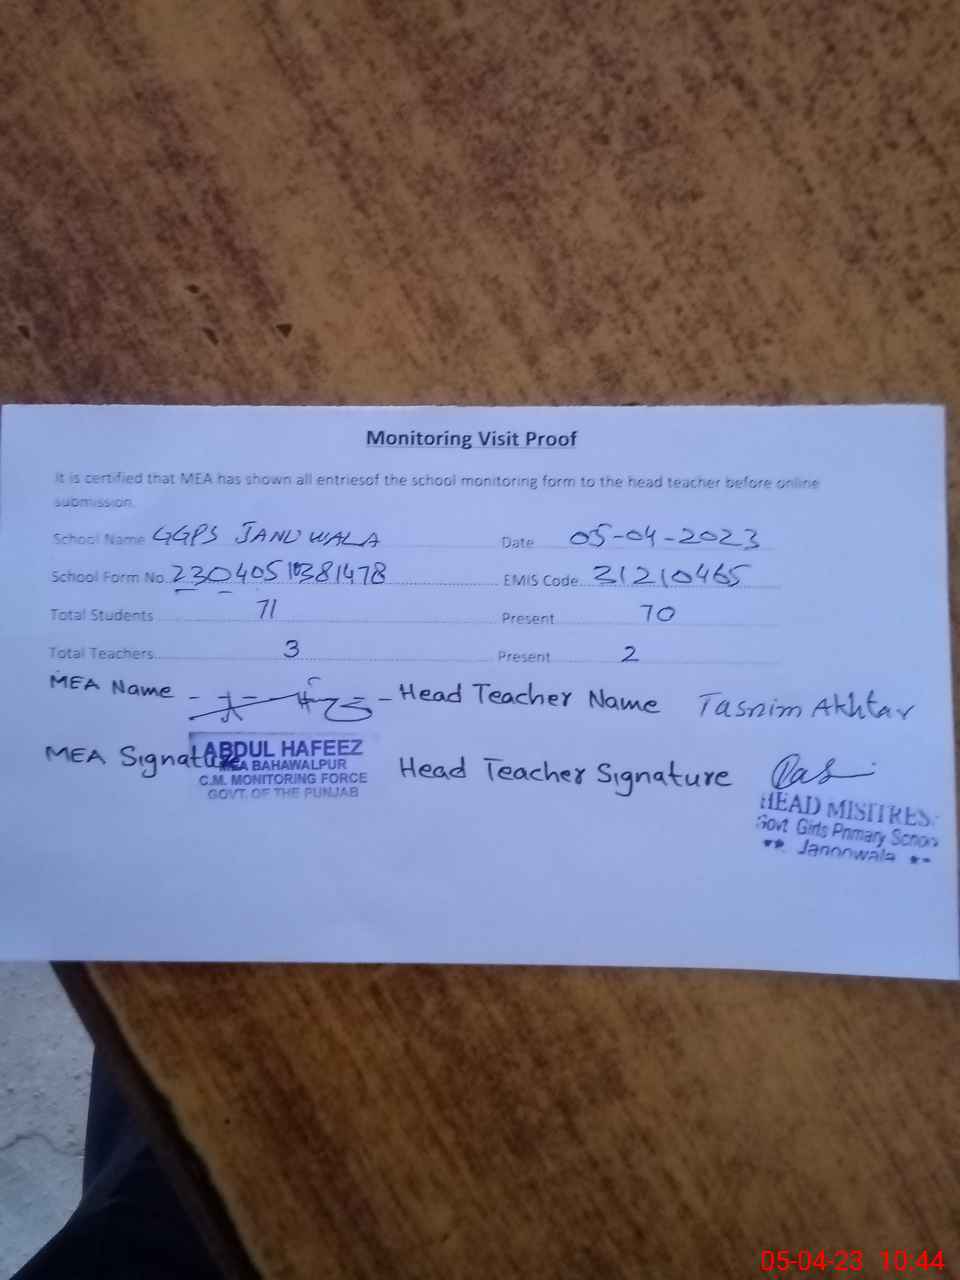 Monitoring Visit Proof
It is certified that MEA has shown all entriesof the school monitoring form to the head teacher before online
submission.
School Name GGPS JANUWALA Date 05-04-2023
School Form No. 23040510381478 EMIS Code 31210465
Total Students 71 Present 70
Total Teachers 3 Present 2
MEA Name Head Teacher Name Tasnim Akhtar
MEA Signature Head Teacher Signature
ABDUL HAFEEZ
MEA BAHAWALPUR
C.M. MONITORING FORCE
GOVT. OF THE PUNJAB
HEAD MISITRES
Govt Girls Primary School
Janoowala
05-04-23 10:44